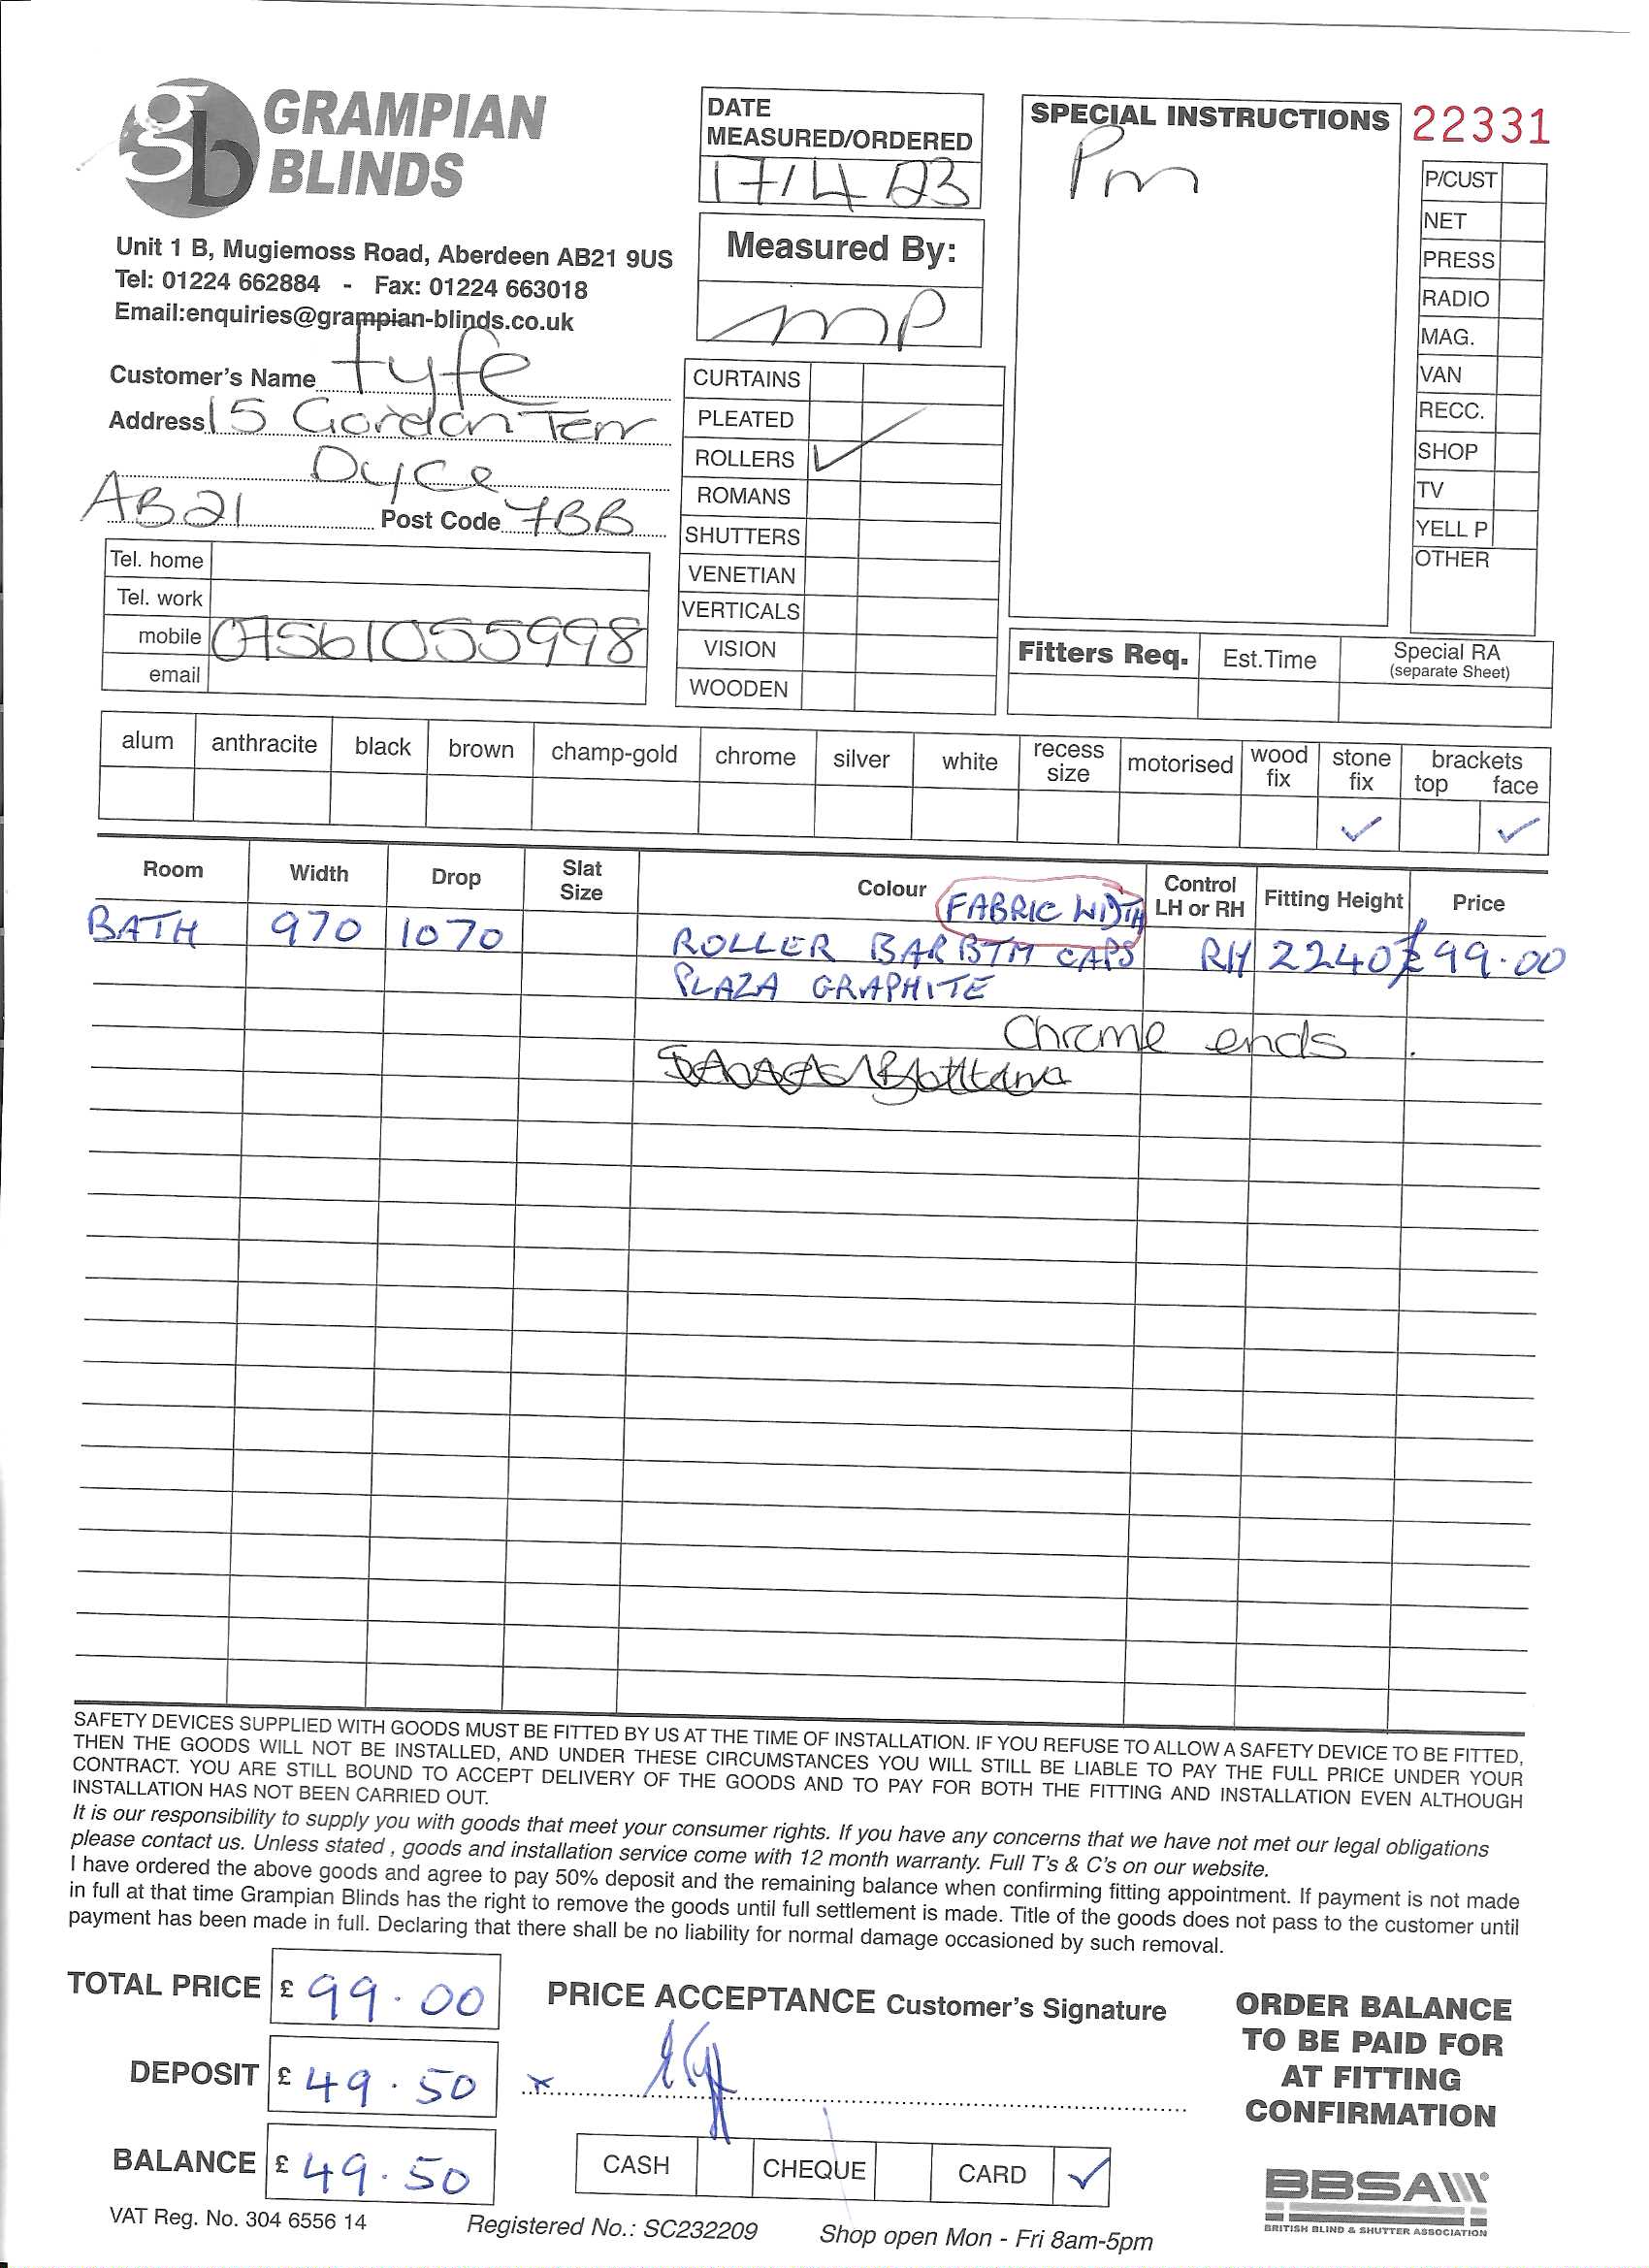 gb GRAMPIAN
BLINDS
Unit 1 B, Mugiemoss Road, Aberdeen AB21 9US
Tel: 01224 662884 - Fax: 01224 663018
Email:enquiries@grampian-blinds.co.uk
Customer's Name Fyfe
Address 15 Gordon Terr
Dyce
AB21 Post Code 7BB
Tel. home
Tel. work
mobile 07561055998
email
DATE
MEASURED/ORDERED
17/4/23
Measured By:
MP
CURTAINS
PLEATED
ROLLERS ✓
ROMANS
SHUTTERS
VENETIAN
VERTICALS
VISION
WOODEN
SPECIAL INSTRUCTIONS
Pm
22331
P/CUST
NET
PRESS
RADIO
MAG.
VAN
RECC.
SHOP
TV
YELL P
OTHER
Fitters Req. Est.Time Special RA
(separate Sheet)
alum anthracite black brown champ-gold chrome silver white recess size motorised wood fix stone fix brackets top face
✓ ✓
Room Width Drop Slat Size Colour Control LH or RH Fitting Height Price
FABRIC WIDTH
BATH 970 1070 ROLLER BAR BTM CAPS RH 2240 £99.00
PLAZA GRAPHITE
Chrome ends
SAFETY DEVICES SUPPLIED WITH GOODS MUST BE FITTED BY US AT THE TIME OF INSTALLATION. IF YOU REFUSE TO ALLOW A SAFETY DEVICE TO BE FITTED,
THEN THE GOODS WILL NOT BE INSTALLED, AND UNDER THESE CIRCUMSTANCES YOU WILL STILL BE LIABLE TO PAY THE FULL PRICE UNDER YOUR
CONTRACT. YOU ARE STILL BOUND TO ACCEPT DELIVERY OF THE GOODS AND TO PAY FOR BOTH THE FITTING AND INSTALLATION EVEN ALTHOUGH
INSTALLATION HAS NOT BEEN CARRIED OUT.
It is our responsibility to supply you with goods that meet your consumer rights. If you have any concerns that we have not met our legal obligations
please contact us. Unless stated , goods and installation service come with 12 month warranty. Full T's & C's on our website.
I have ordered the above goods and agree to pay 50% deposit and the remaining balance when confirming fitting appointment. If payment is not made
in full at that time Grampian Blinds has the right to remove the goods until full settlement is made. Title of the goods does not pass to the customer until
payment has been made in full. Declaring that there shall be no liability for normal damage occasioned by such removal.
TOTAL PRICE £ 99.00
DEPOSIT £ 49.50
BALANCE £ 49.50
PRICE ACCEPTANCE Customer's Signature
x
CASH CHEQUE CARD ✓
ORDER BALANCE
TO BE PAID FOR
AT FITTING
CONFIRMATION
BBSA
BRITISH BLIND & SHUTTER ASSOCIATION
VAT Reg. No. 304 6556 14 Registered No.: SC232209 Shop open Mon - Fri 8am-5pm